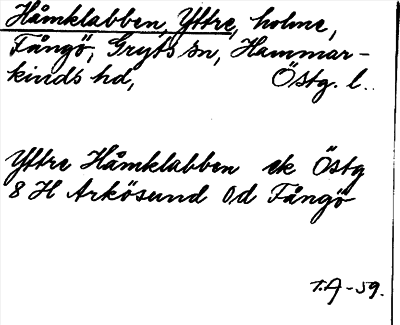 Håmklabben, Yttre, holme,
Fångö, Gryts sn, Hammar-
kinds hd, Östg. l..
Yttre Håmklabben ek Östg
8 H Arkösund Od Fångö
T.A-59.